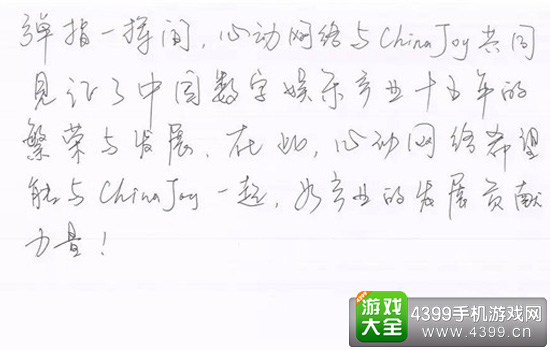 弹指一挥间，心动网络与ChinaJoy共同
见证了中国数字娱乐产业十五年的
繁荣与发展、在此，心动网络希望
能与ChinaJoy一起，为产业的发展贡献
力量！
游戏大全
4399手机游戏网
www.4399.cn